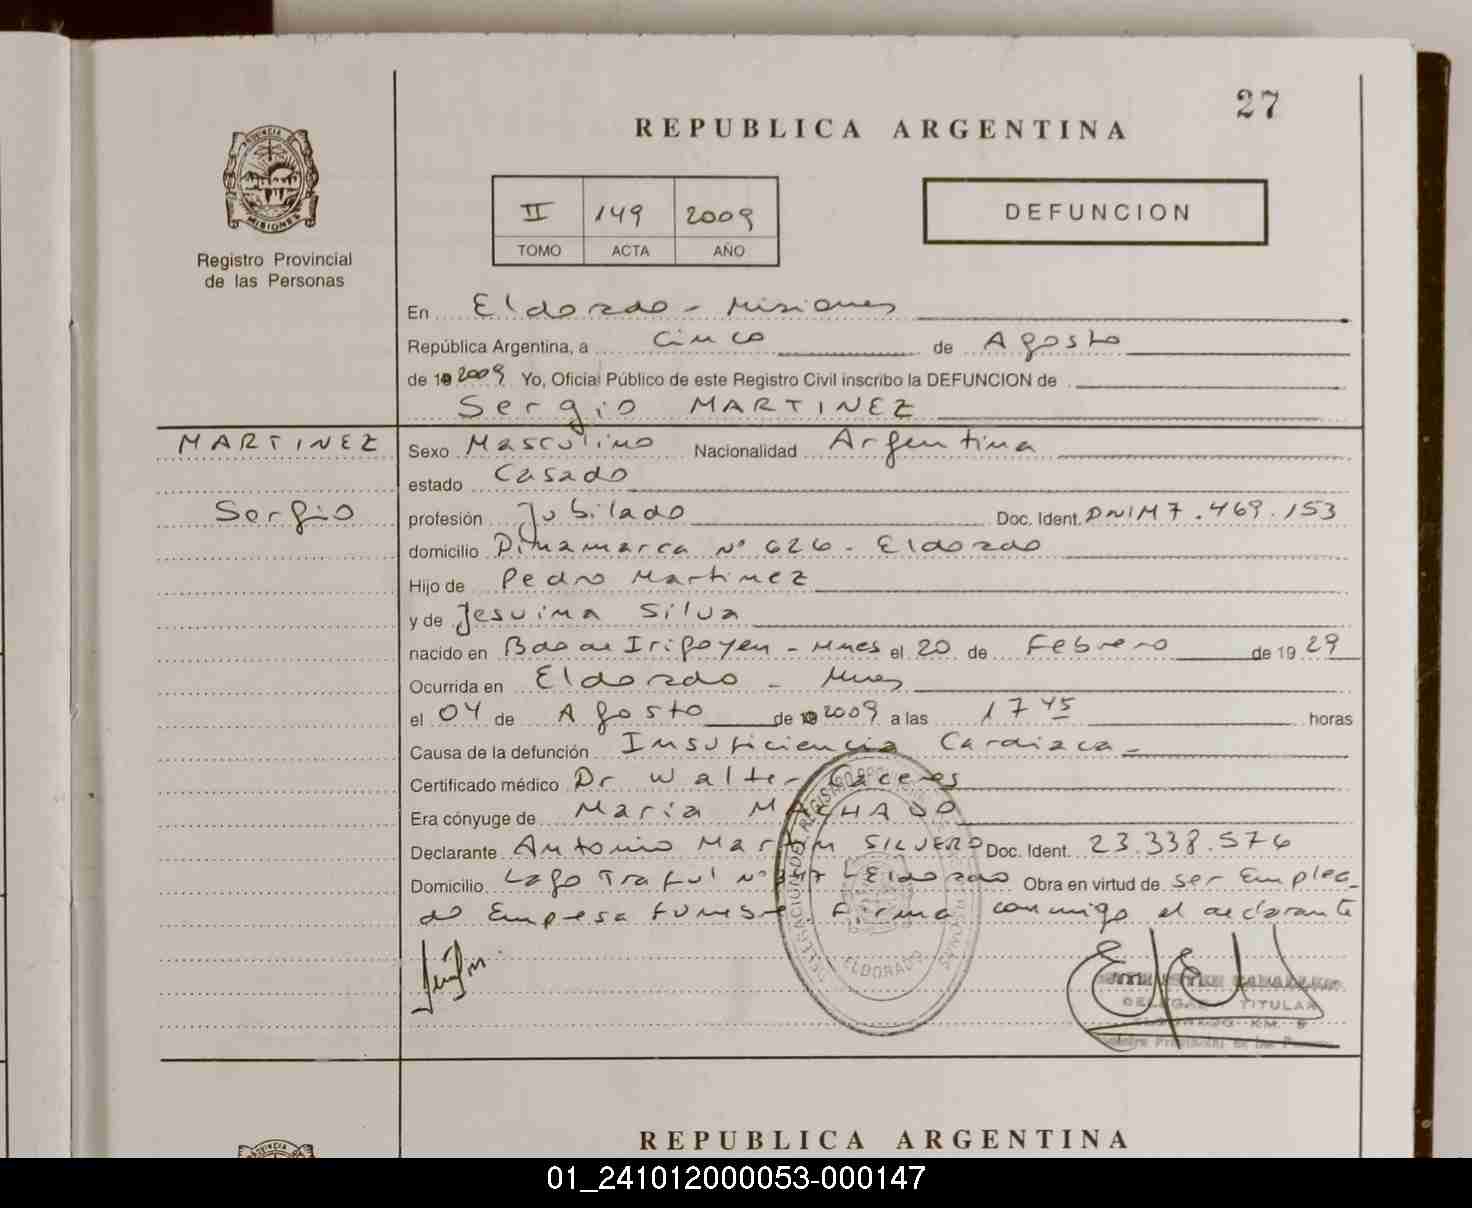 27
REPUBLICA ARGENTINA
PROVINCIA DE
MISIONES
Registro Provincial
de las Personas
II 149 2009
TOMO ACTA AÑO
DEFUNCION
En Eldorado - Misiones
República Argentina, a Cinco de Agosto
de 19 2009 Yo, Oficial Público de este Registro Civil inscribo la DEFUNCION de
Sergio MARTINEZ
MARTINEZ
Sergio
Sexo Masculino Nacionalidad Argentina
estado Casado
profesión Jubilado Doc. Ident. DNIM 7.469.153
domicilio Dinamarca Nº 626 - Eldorado
Hijo de Pedro Martinez
y de Jesuina Silva
nacido en Bdo de Irigoyen - Mnes el 20 de Febrero de 19 29
Ocurrida en Eldorado - Mnes
el 04 de Agosto de 19 2009 a las 17 45 horas
Causa de la defunción Insuficiencia Cardiaca -
Certificado médico Dr Walter Caceres
Era cónyuge de Maria MACHADO
Declarante Antonio Martin SILVERO Doc. Ident. 23.338.576
Domicilio Lago Traful Nº - Eldorado Obra en virtud de ser Emplea_
do Empresa Funebre Firma conmigo el declarante
ELDORADO
TITULAR
REPUBLICA ARGENTINA
01_241012000053-000147